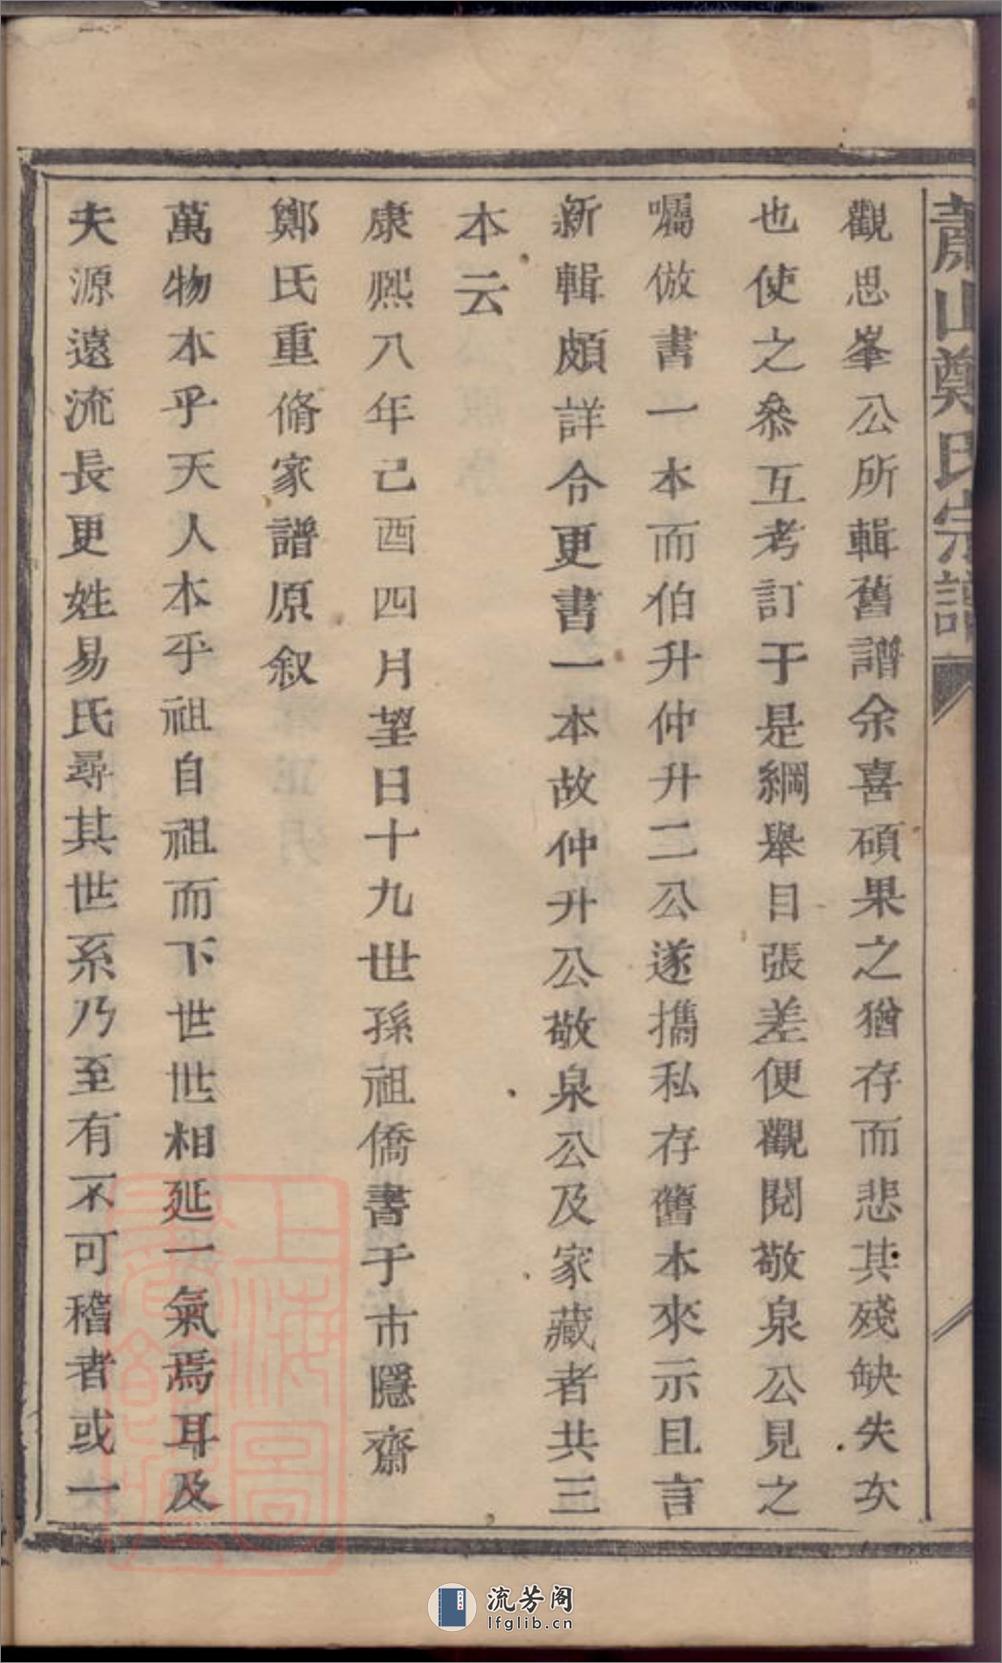 蕭山鄭氏宗譜
觀思峯公所輯舊譜余喜碩果之猶存而悲其殘缺失次
也使之叅互考訂于是綱舉目張差便觀閱敬泉公見之
囑倣書一本而伯升仲升二公遂攜私存舊本來示且言
新輯頗詳令更書一本故仲升公敬泉公及家藏者共三
本云
康熙八年己酉四月望日十九世孫祖僑書于市隱齋
鄭氏重脩家譜原叙
萬物本乎天人本乎祖自祖而下世世相延一氣焉耳及
夫源遠流長更姓易氏尋其世系乃至有不可稽者或一
上海圖
書館藏
流芳阁
lfglib.cn